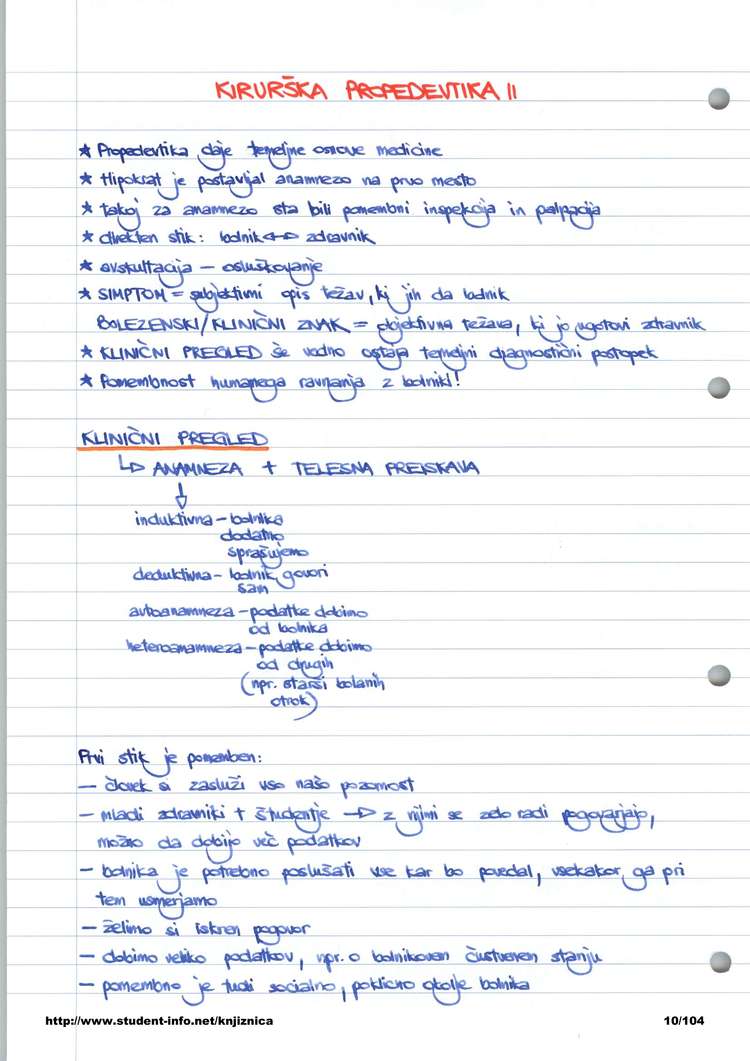 KIRURŠKA PROPEDEVTIKA II
* Propedevtika daje temeljne osnove medicine
* Hipokrat je postavljal anamnezo na prvo mesto
* takoj za anamnezo sta bili pomembni inspekcija in palpacija
* direkten stik: bolnik ↔ zdravnik
* avskultacija – osluškovanje
* SIMPTOM = subjektivni opis težav, ki jih da bolnik
BOLEZENSKI/KLINIČNI ZNAK = objektivna težava, ki jo ugotovi zdravnik
* KLINIČNI PREGLED še vedno ostaja temeljni diagnostični postopek
* Pomembnost humanega ravnanja z bolniki!
KLINIČNI PREGLED
↳ ANAMNEZA + TELESNA PREISKAVA
↓
induktivna – bolnika
dodatno
sprašujemo
deduktivna – bolnik govori
sam
avtoanamneza – podatke dobimo
od bolnika
heteroanamneza – podatke dobimo
od drugih
(npr. starši bolanih
otrok)
Prvi stik je pomemben:
– človek si zasluži vso našo pozornost
– mladi zdravniki + študentje → z njimi se zelo radi pogovarjajo,
možno da dobijo več podatkov
– bolnika je potrebno poslušati vse kar bo povedal, vsekakor ga pri
tem usmerjamo
– želimo si iskren pogovor
– dobimo veliko podatkov, npr. o bolnikovem čustvenem stanju
– pomembno je tudi socialno, poklicno okolje bolnika
http://www.student-info.net/knjiznica
10/104